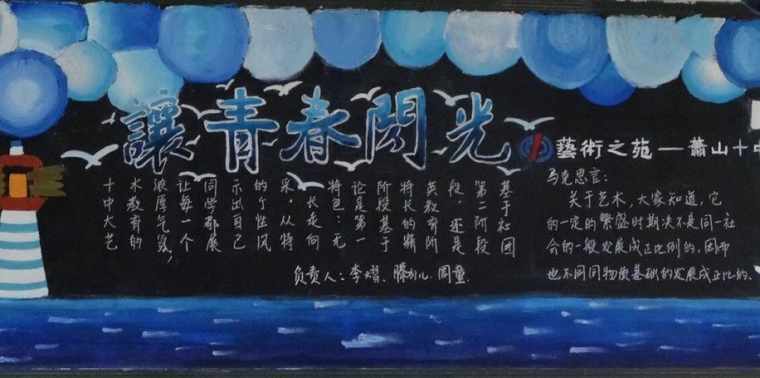 讓青春閃光
藝術之苑一蕭山十中
基于社团
第二阶段
段,还是
英教育阶
特长的精
阶段基于
论是第一
特色:无
长走向
采,从特
的个性风
示出自己
同学都展
让每一个
浓厚气氛,
术教育的
十中大艺
负责人:李熠、滕、周童
马克思言:
关于艺术,大家知道,它
的一定的繁盛时期决不是同一社
会的一般发展成正比例的,因而
也不同同物质基础的发展成正比的、